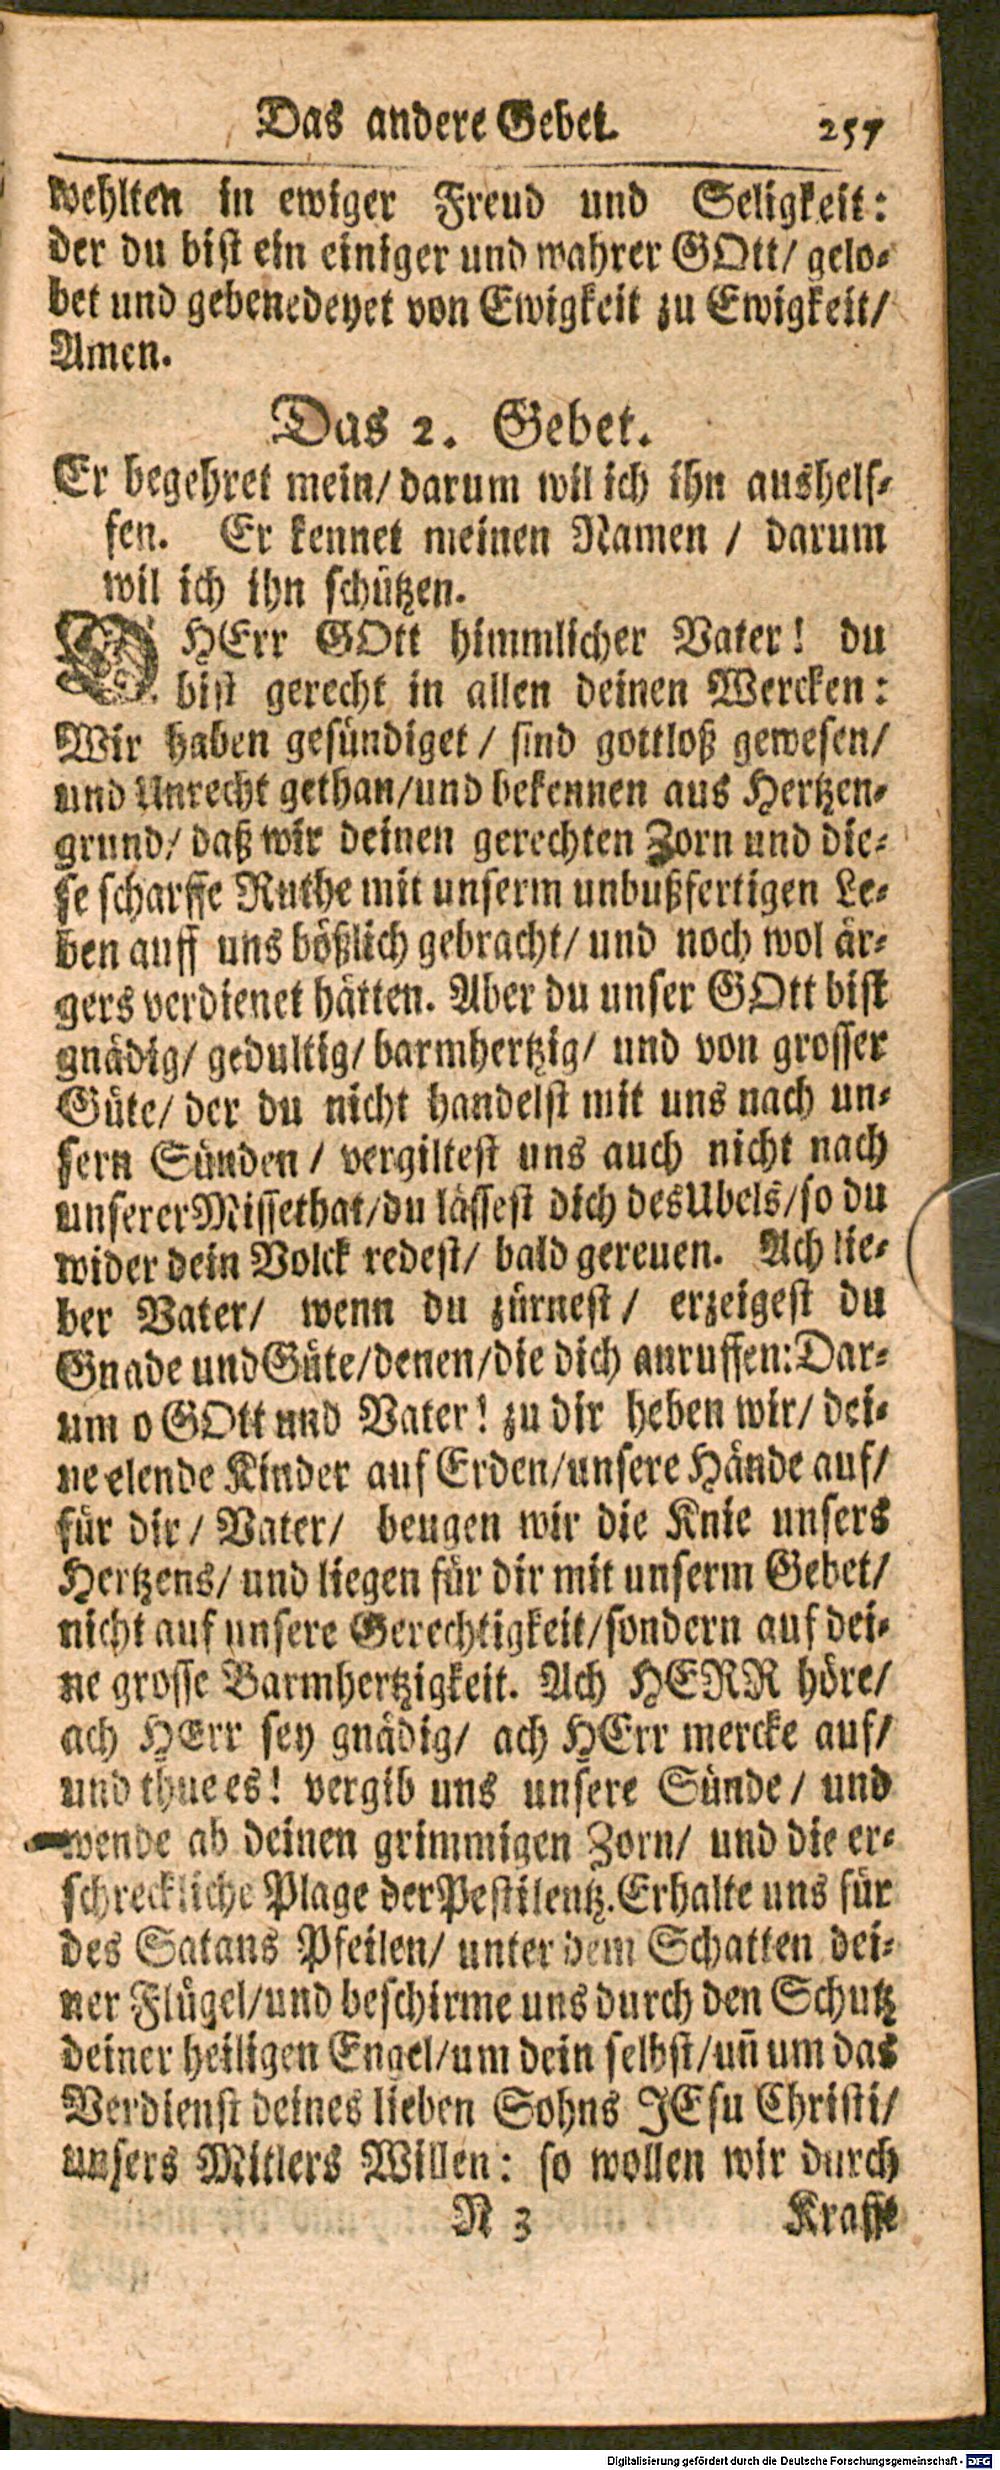 Das andere Gebet. 257
wehlten in ewiger Freud und Seligkeit:
der du bist ein einiger und wahrer GOtt/ gelo-
bet und gebenedeyet von Ewigkeit zu Ewigkeit/
Amen.
Das 2. Gebet.
Er begehret mein/ darum wil ich ihn aushelf-
fen. Er kennet meinen Namen / darum
wil ich ihn schützen.
O HErr GOtt himmlicher Vater! du
bist gerecht in allen deinen Wercken:
Wir haben gesündiget / sind gottloß gewesen/
und Unrecht gethan/und bekennen aus Hertzen-
grund/ daß wir deinen gerechten Zorn und die-
se scharffe Ruthe mit unserm unbußfertigen Le-
ben auff uns bößlich gebracht/ und noch wol är-
gers verdienet hätten. Aber du unser GOtt bist
gnädig/ gedultig/ barmhertzig/ und von grosser
Güte/ der du nicht handelst mit uns nach un-
sern Sünden / vergiltest uns auch nicht nach
unserer Missethat/du lässest dich des Ubels/so du
wider dein Volck redest/ bald gereuen. Ach lie-
ber Vater/ wenn du zürnest / erzeigest du
Gnade und Güte/denen/die dich anruffen: Dar-
um o GOtt und Vater! zu dir heben wir/ dei-
ne elende Kinder auf Erden/unsere Hände auf/
für dir / Vater/ beugen wir die Knie unsers
Hertzens/ und liegen für dir mit unserm Gebet/
nicht auf unsere Gerechtigkeit/sondern auf dei-
ne grosse Barmhertzigkeit. Ach HERR höre/
ach HErr sey gnädig/ ach HErr mercke auf/
und thue es! vergib uns unsere Sünde / und
wende ab deinen grimmigen Zorn/ und die er-
schreckliche Plage der Pestilentz. Erhalte uns für
des Satans Pfeilen/ unter dem Schatten dei-
ner Flügel/und beschirme uns durch den Schutz
deiner heiligen Engel/um dein selbst/uñ um das
Verdienst deines lieben Sohns JEsu Christi/
unsers Mitlers Willen: so wollen wir durch
R 3 Krafft
Digitalisierung gefördert durch die Deutsche Forschungsgemeinschaft - DFG